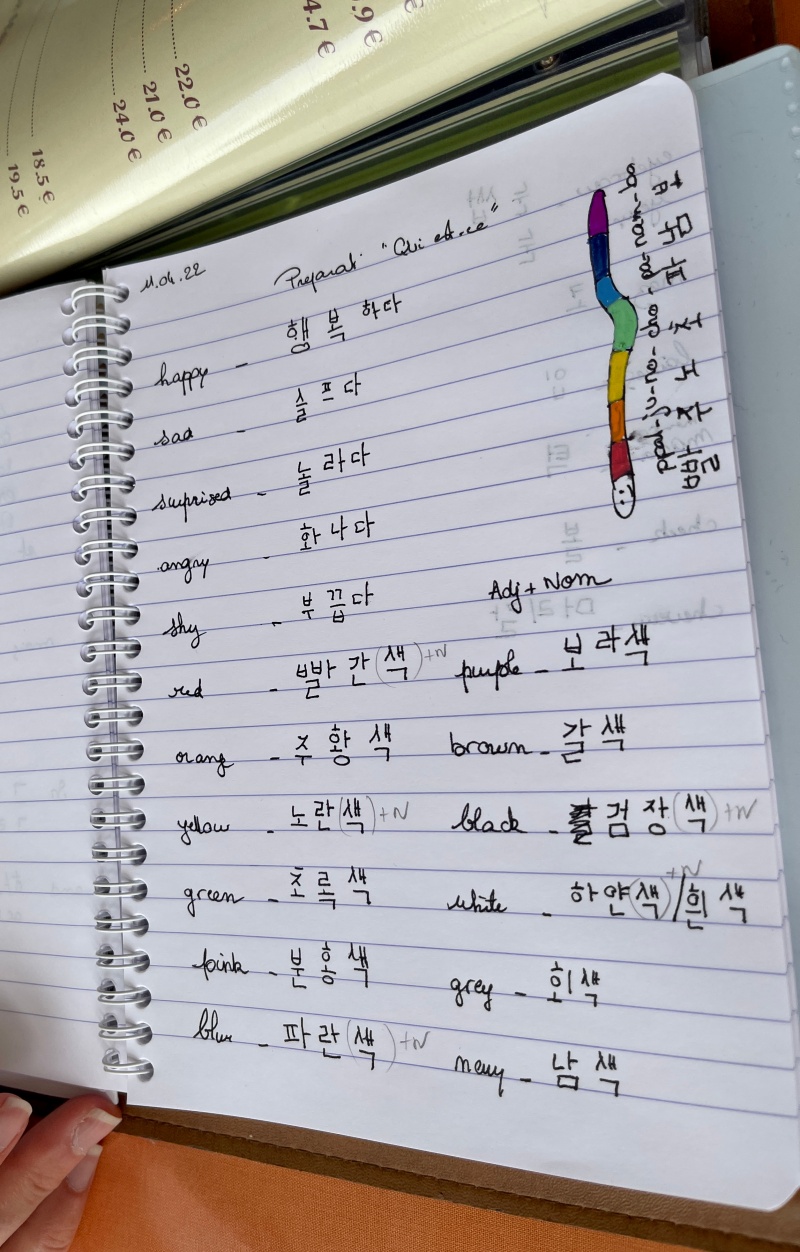 4.7 €
.9 €
22.0 €
21.0 €
24.0 €
18.5 €
19.5 €
11.04.22
Preparati "Qui est-ce"
happy - 행복하다
sad - 슬프다
surprized - 놀라다
angry - 화나다
shy - 부끕다
Adj + Nom
red - 빨간(색)+N
purple - 보라색
orang - 주황색
brown - 갈색
yellow - 노란(색)+N
black - 검장(색)+N
green - 초록색
white - 하얀(색)+N/흰색
pink - 분홍색
grey - 회색
blue - 파란(색)+N
navy - 남색
빨주노초파남보
ppal-ju-no-cho-pa-nam-bo